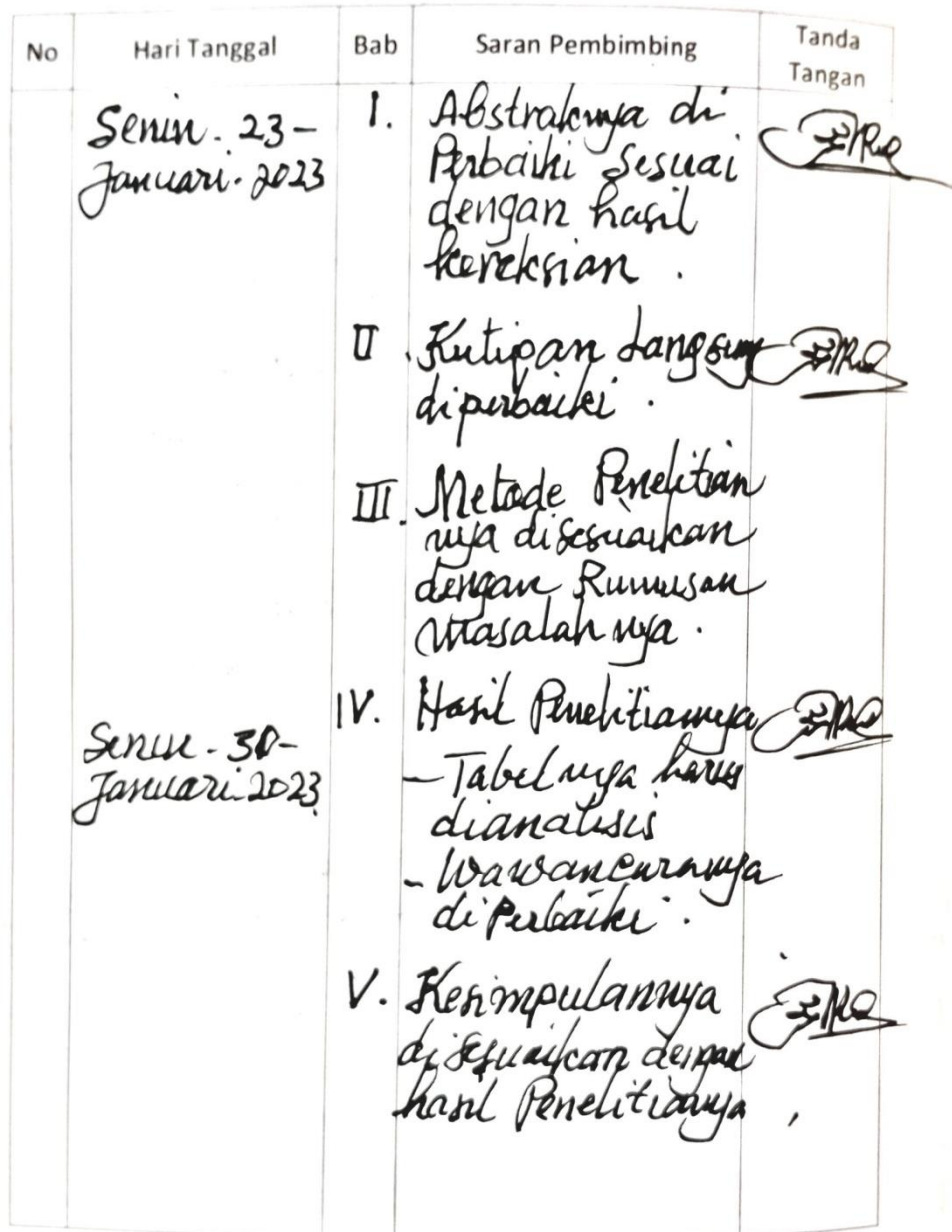 No Hari Tanggal Bab Saran Pembimbing Tanda Tangan
Senin. 23-
Januari. 2023
I. Abstraknya di
Perbaiki Sesuai
dengan hasil
koreksian.
II. Kutipan Langsung
diperbaiki.
III. Metode Penelitian
nya disesuaikan
dengan Rumusan
Masalah nya.
Senin - 30-
Januari. 2023
IV. Hasil Penelitiannya
- Tabel nya harus
dianalisis
- Wawancaranya
di Perbaiki.
V. Kesimpulannya
disesuaikan dengan
hasil Penelitiannya,